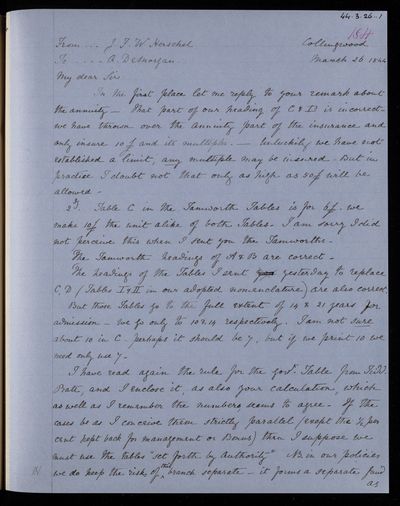 44.3.26.1
184
From ... J. F. W. Herschel Collingwood
To ..... A. DeMorgan March 26 1844
My dear Sir
In the first place let me reply to your remark about
the annuity — That part of our heading of C & D is incorrect
we have thrown over the annuity part of the insurance and
only insure 10£ and its multiples. — Unluckily we have not
established a limit, any multiple may be insured. But in
practise I doubt not that only as high as 50£ will be
allowed —
2d. Table C in the Tamworth Tables is for 5£. we
make 10£ the unit alike of both Tables. I am sorry I did
not perceive this when I sent you the Tamworths —
The Tamworth headings of A & B are correct —
The headings of the Tables I sent yesterday to replace
C, D (Tables I & II in our adopted nomenclature) are also correct
But those Tables go to the full extent of 14 & 21 years for
admission — we go only to 10 & 14 respectively. I am not sure
about 10 in C. perhaps it should be 7, but if we print 10 we
need only use 7 —
I have read again the rule for the govt. Table from
Pratt, and I enclose it, as also your calculation, which
as well as I remember the numbers seems to agree. If the
cases be as I conceive them strictly parallel (except the ½ per
cent kept back for management or Bonus) then I suppose we
must use the tables "set forth by Authority" NB. in our policies
we do keep the risk of this branch separate — it forms a separate fund
as